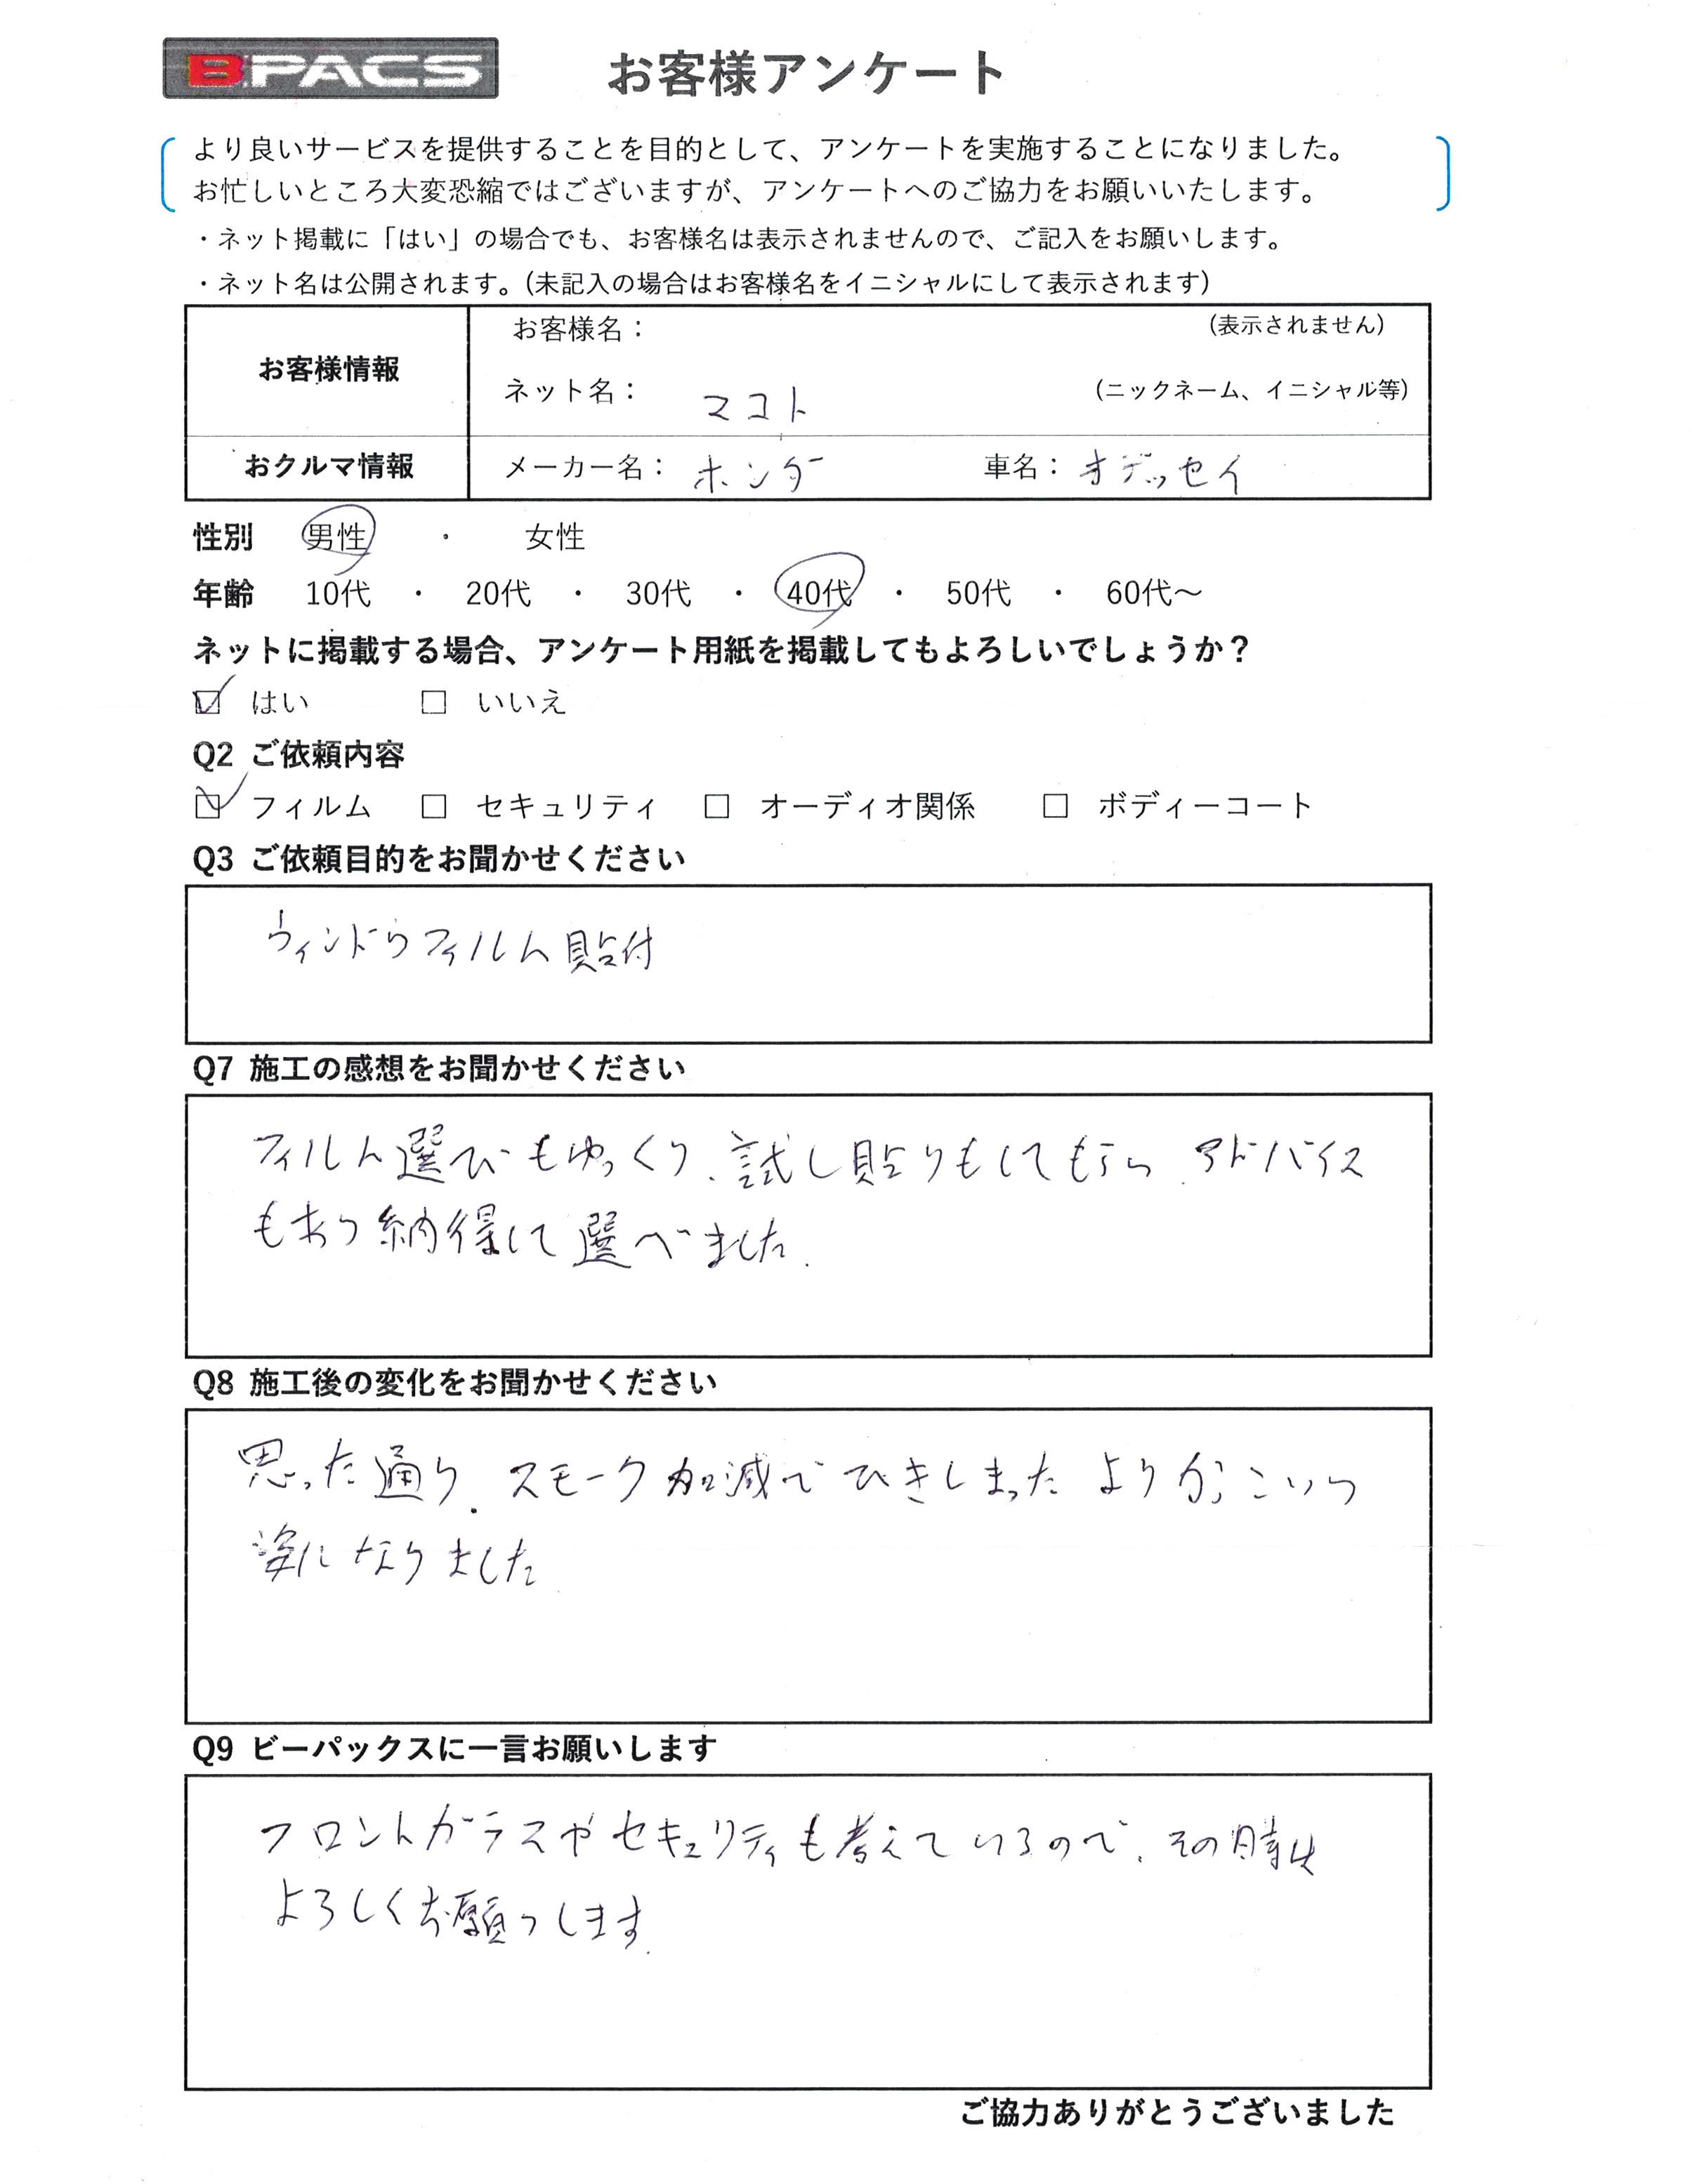 B.PACS お客様アンケート
より良いサービスを提供することを目的として、アンケートを実施することになりました。
お忙しいところ大変恐縮ではございますが、アンケートへのご協力をお願いいたします。
・ネット掲載に「はい」の場合でも、お客様名は表示されませんので、ご記入をお願いします。
・ネット名は公開されます。(未記入の場合はお客様名をイニシャルにして表示されます)
お客様情報
お客様名： (表示されません)
ネット名： マコト (ニックネーム、イニシャル等)
おクルマ情報 メーカー名： ホンダ 車名： オデッセイ
性別 男性 ・ 女性
年齢 10代 ・ 20代 ・ 30代 ・ 40代 ・ 50代 ・ 60代～
ネットに掲載する場合、アンケート用紙を掲載してもよろしいでしょうか？
☑ はい □ いいえ
Q2 ご依頼内容
☑ フィルム □ セキュリティ □ オーディオ関係 □ ボディーコート
Q3 ご依頼目的をお聞かせください
ウィンドウフィルム貼付
Q7 施工の感想をお聞かせください
フィルム選びもゆっくり、試し貼りもしてもらい、アドバイス
もあり納得して選べました。
Q8 施工後の変化をお聞かせください
思った通り、スモーク加減でひきしまった よりかっこいい
姿になりました
Q9 ビーパックスに一言お願いします
フロントガラスやセキュリティも考えているので、その時も
よろしくお願いします。
ご協力ありがとうございました